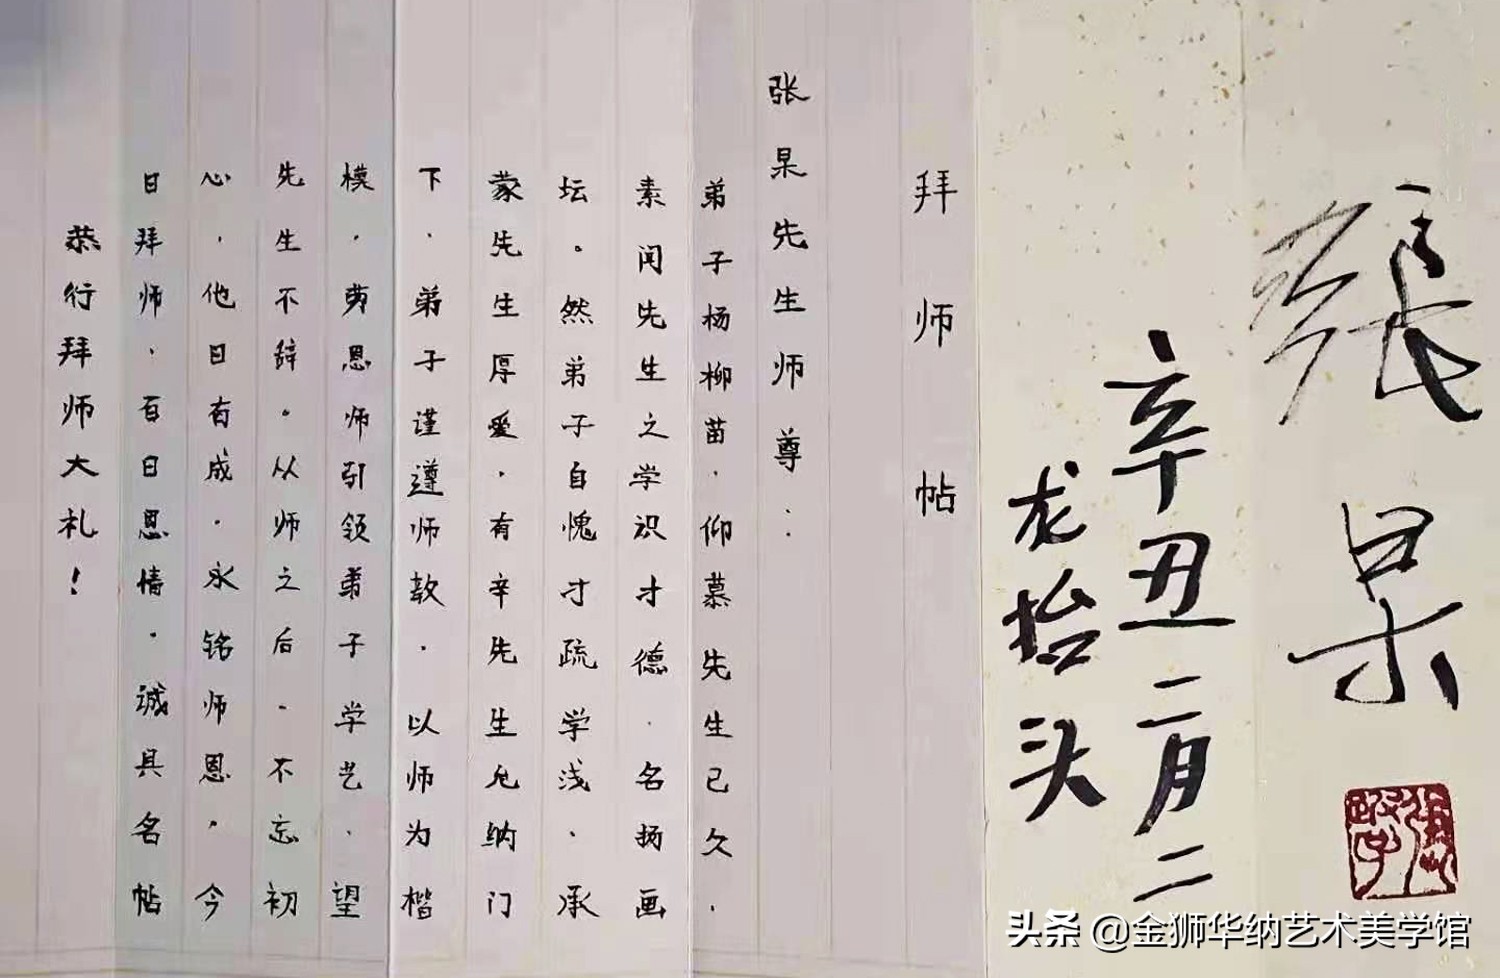 張杲
辛丑二月二
龙抬头
拜师帖
张杲先生师尊：
弟子杨柳苗，仰慕先生已久，
素闻先生之学识才德，名扬画
坛。然弟子自愧才疏学浅，承
蒙先生厚爱，有辛先生允纳门
下，弟子谨遵师教，以师为楷
模，劳恩师引领弟子学艺，望
先生不辞。从师之后，不忘初
心，他日有成，永铭师恩，今
日拜师，百日恩情，诚具名帖
恭行拜师大礼！
头条 @金狮华纳艺术美学馆